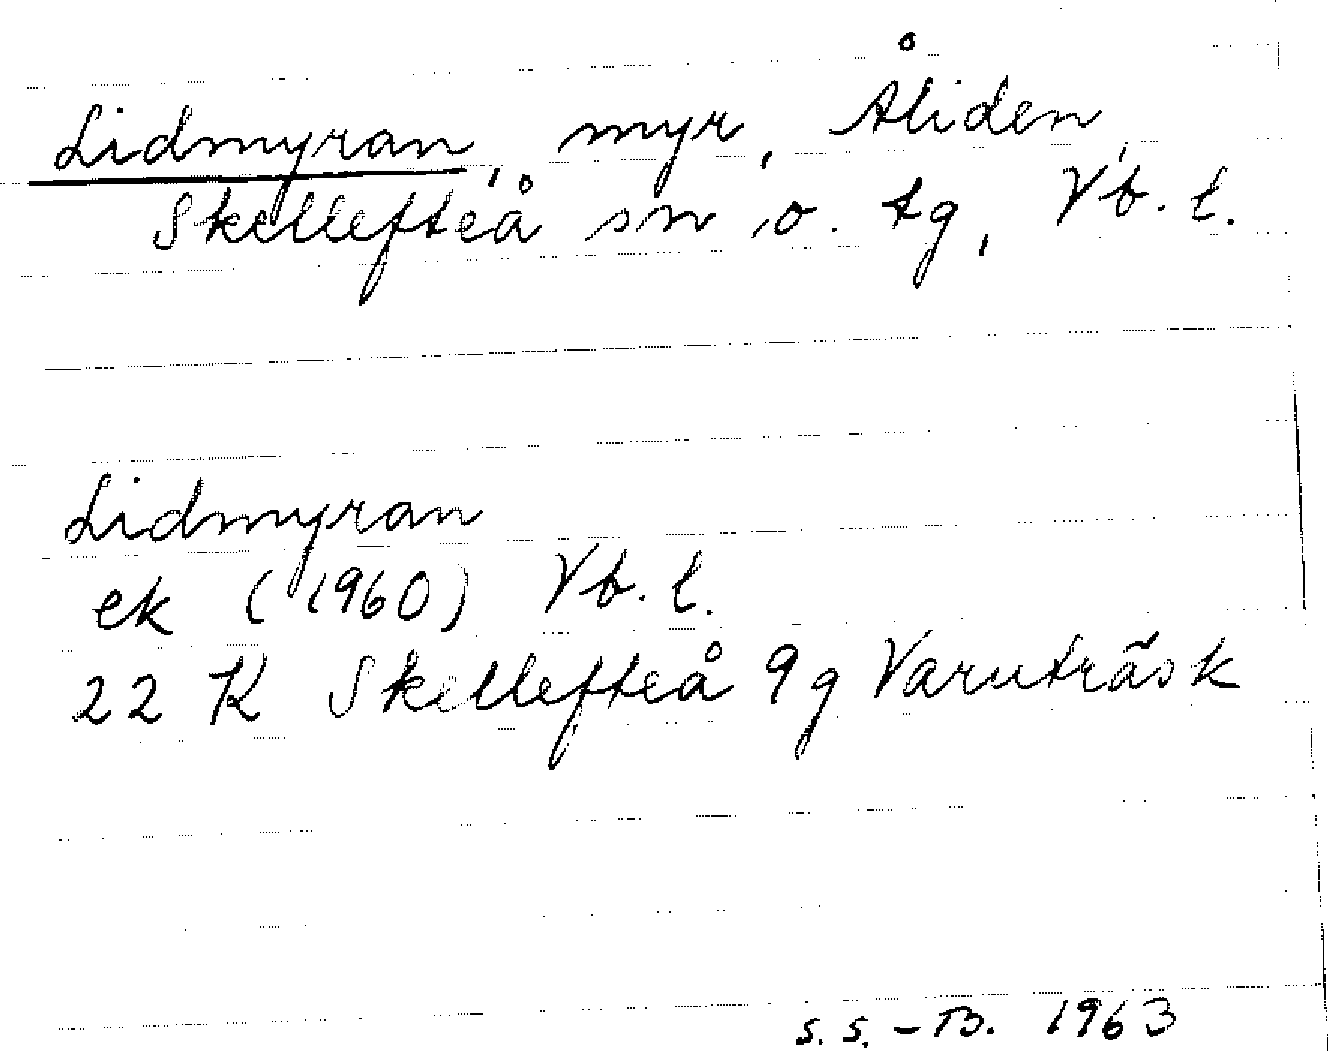 Lidmyran, myr, Åliden,
Skellefteå sn o. tg, Vb. l.
Lidmyran
ek (1960) Vb. l.
22 K Skellefteå 9g Varuträsk
S. S. – B. 1963